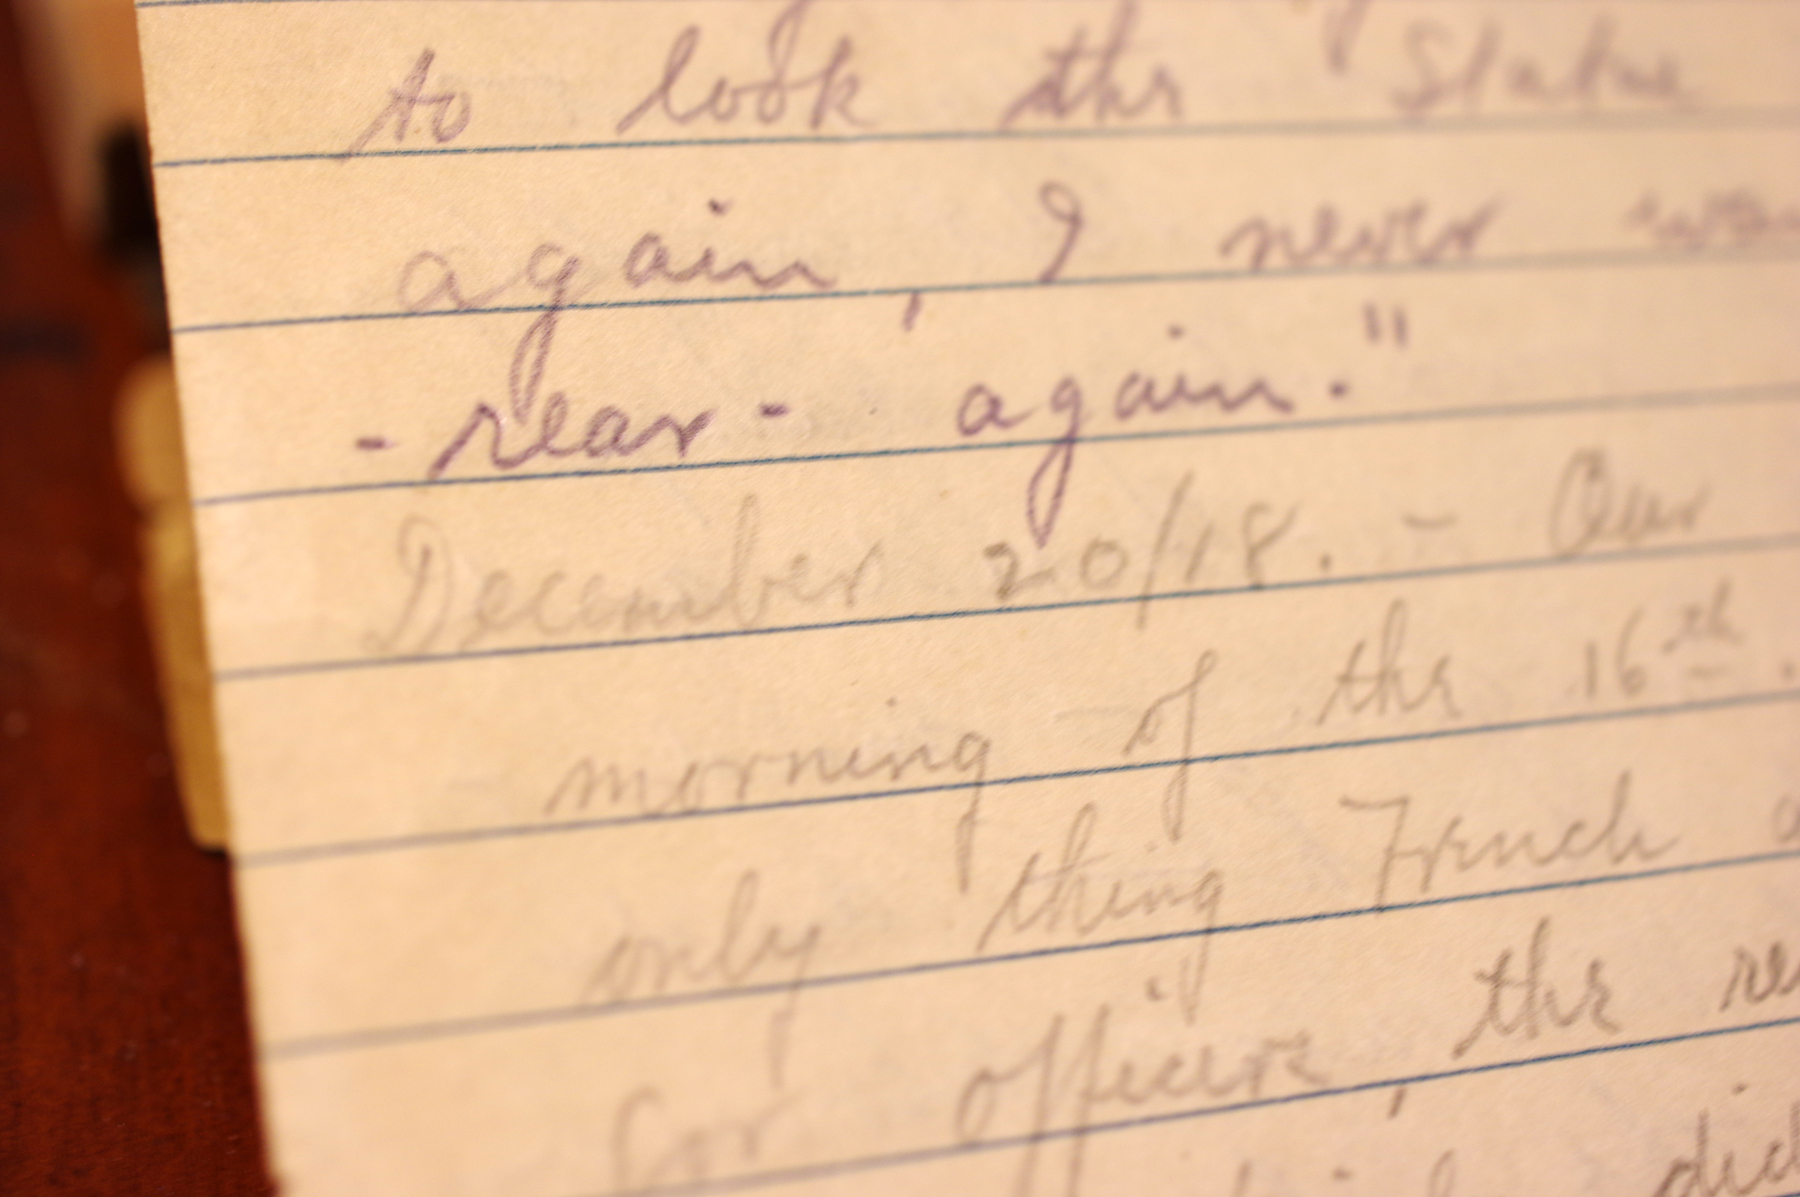 to look the Statue
again, I never
- rear - again."
December 20/18. - Our
morning of the 16th.
only thing French
for officers, the
did